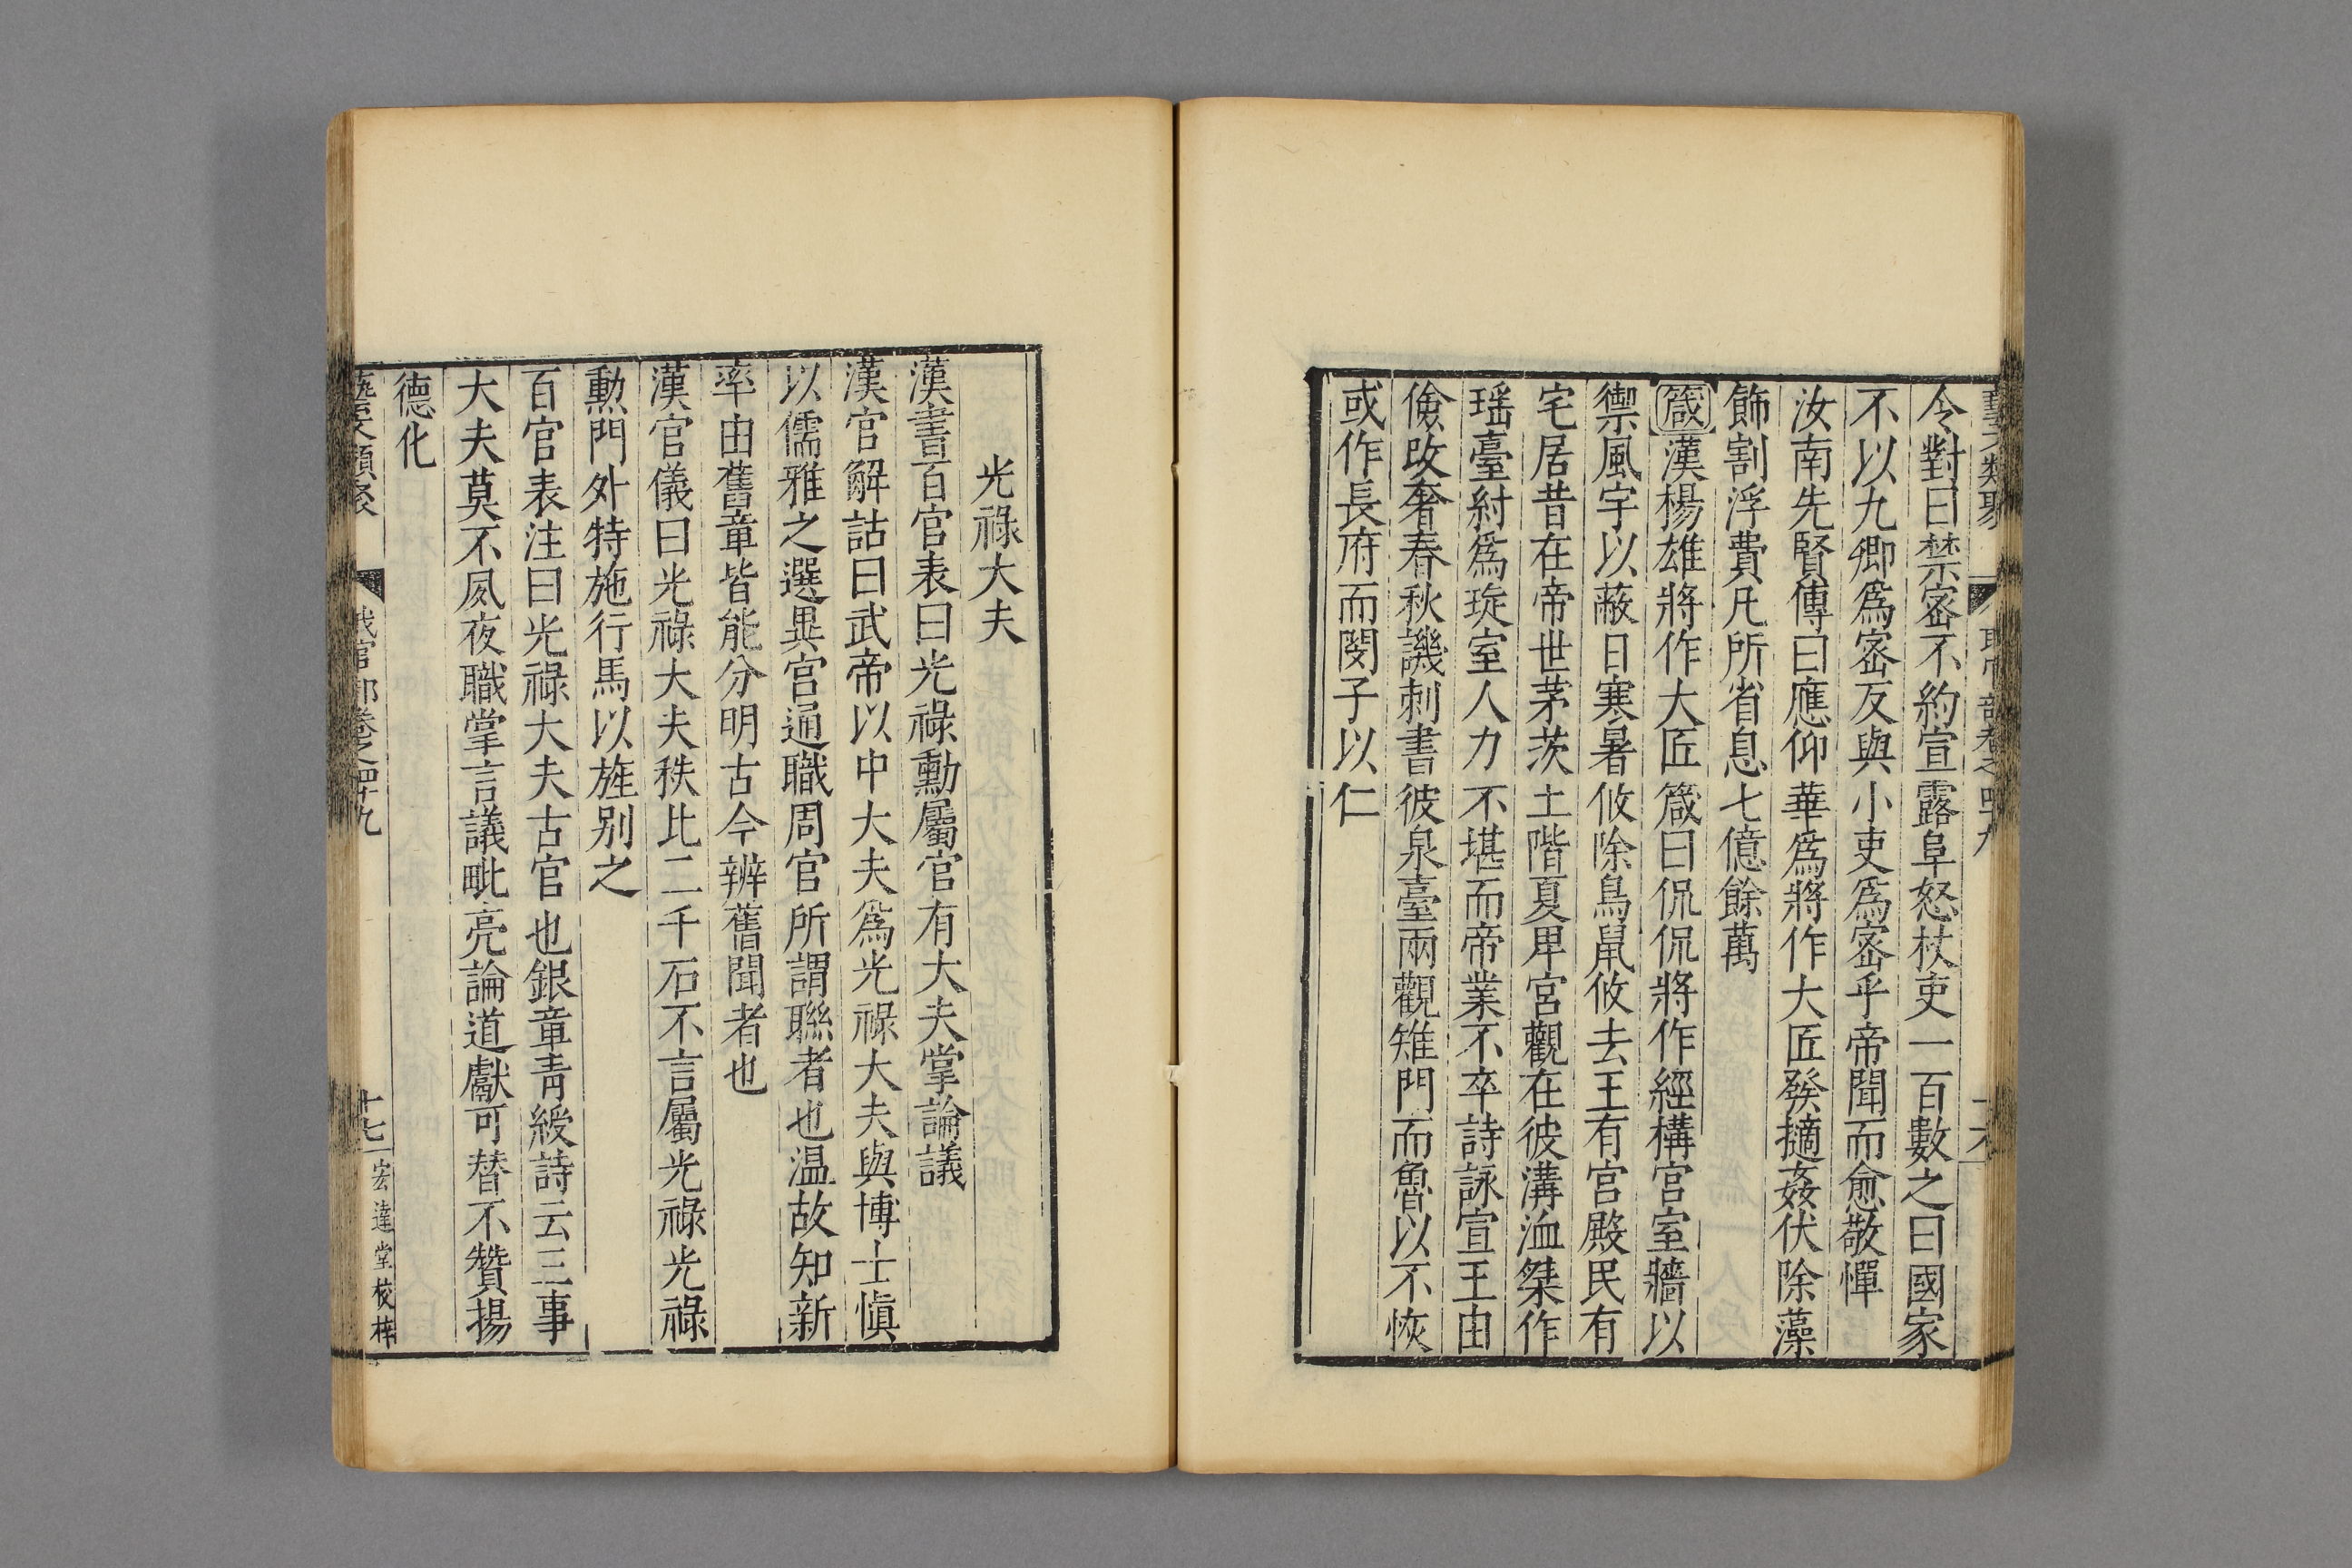 令對曰禁宻不約宣露阜怒杖吏一百數之曰國家
不以九卿爲宻反與小吏爲宻乎帝聞而愈敬憚
汝南先賢傳曰應仰華爲將作大匠發擿姦伏除藻
飾割浮費凡所省息七億餘萬
箴漢楊雄將作大匠箴曰侃侃將作經構宮室牆以
禦風宇以蔽日寒暑攸除鳥鼠攸去王有宮殿民有
宅居昔在帝世茅茨土階夏卑宮觀在彼溝洫桀作
瑶臺紂爲琁室人力不堪而帝業不卒詩詠宣王由
儉改奢春秋譏刺書彼泉臺兩觀雉門而魯以不恢
或作長府而閔子以仁
光祿大夫
漢書百官表曰光祿勳屬官有大夫掌論議
漢官解詁曰武帝以中大夫爲光祿大夫與博士愼
以儒雅之選異官通職周官所謂聮者也温故知新
率由舊章皆能分明古今辨舊聞者也
漢官儀曰光祿大夫秩比二千石不言屬光祿光祿
勳門外特施行馬以旌别之
百官表注曰光祿大夫古官也銀章靑綬詩云三事
大夫莫不夙夜職掌言議毗亮論道獻可替不贊揚
德化
卷之四十九
十七
宏達堂校梓